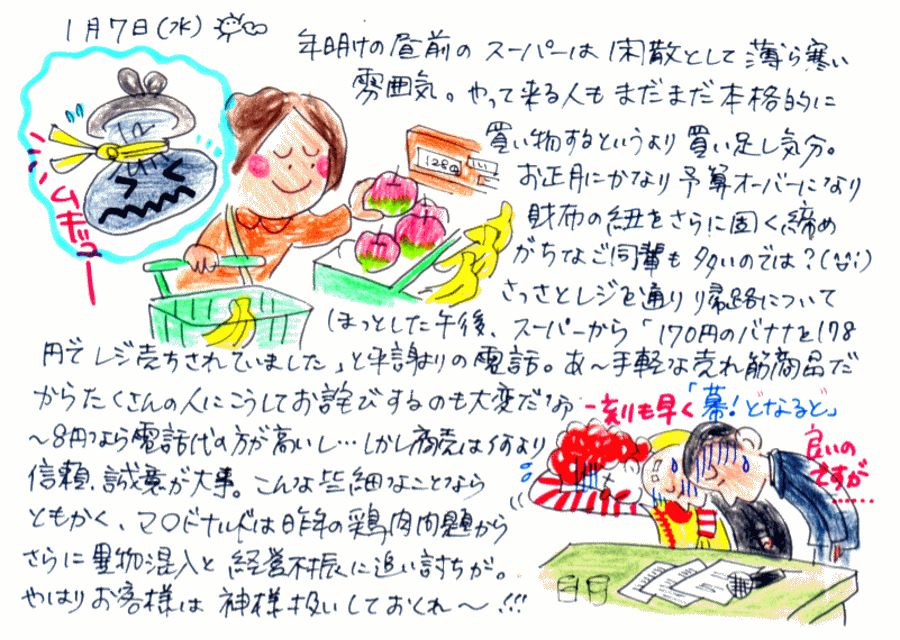 1月7日(水)
年明けの昼前の スーパーは 閑散として 薄ら寒い
雰囲気。やって来る人も まだまだ 本格的に
買い物するというより 買い足し気分。
お正月にかなり 予算オーバーになり
財布の紐をさらに固く締め
がちなご同輩も 多いのでは?
さっさとレジを通り 帰路について
ほっとした午後、スーパーから「170円のバナナを178
円で レジ売ちされていました」と平謝りの電話。あ〜手軽な売れ筋商品だ
からたくさんの人にこうしてお詫びするのも大変だなあ
〜8円なら電話代の方が高いし…しかし商売は何より
信頼、誠意が大事。こんな些細なことなら
ともかく、マ○ドナルドは昨年の鶏肉問題から
さらに異物混入と 経営不振に追い討ちが。
やはりお客様は 神様扱いしておくれ〜!!!
ムギュー
128円
一刻も早く「幕!どなるど」
良いの
ですが
……